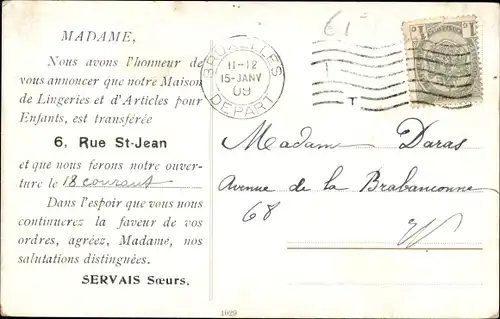 MADAME,
Nous avons l'honneur de
vous annoncer que notre Maison
de Lingeries et d'Articles pour
Enfants, est transférée
6, Rue St-Jean
et que nous ferons notre ouver-
ture le 18 courant
Dans l'espoir que vous nous
continuerez la faveur de vos
ordres, agréez, Madame, nos
salutations distinguées.
SERVAIS Sœurs.
BRUXELLES
11-12
15-JANV
09
DEPART
€1-
T
1 1
Madame Daras
Avenue de la Brabançonne
68
1029